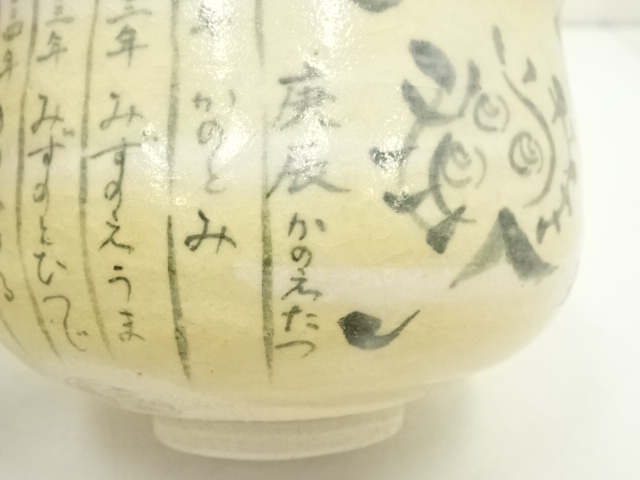 庚辰 かのえたつ
年 かのとみ
三年 みずのえうま
三年 みずのとひつじ
四年